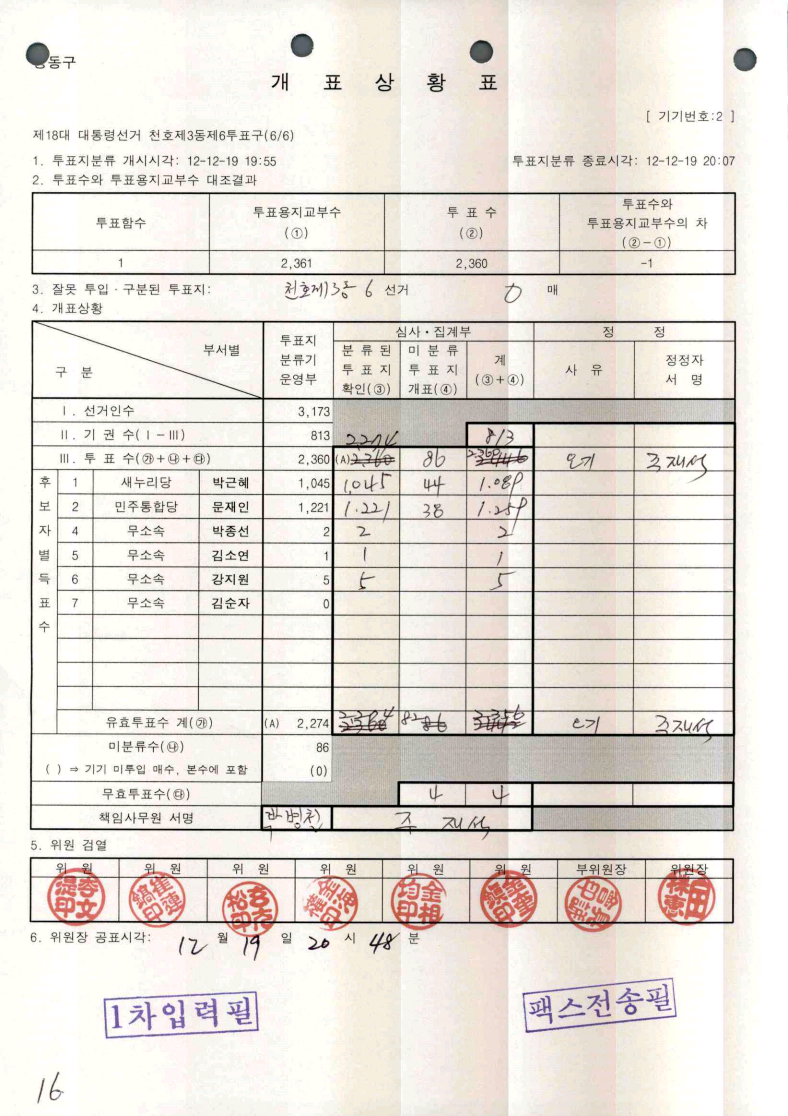 동구
개 표 상 황 표
[ 기기번호:2 ]
제18대 대통령선거 천호제3동제6투표구(6/6)
1. 투표지분류 개시시각: 12-12-19 19:55 투표지분류 종료시각: 12-12-19 20:07
2. 투표수와 투표용지교부수 대조결과
투표함수 투표용지교부수 (①) 투 표 수 (②) 투표수와 투표용지교부수의 차 (②-①)
1 2,361 2,360 -1
3. 잘못 투입·구분된 투표지: 천호제3동 6 선거 0 매
4. 개표상황
구 분 부서별 투표지 분류기 운영부 심사·집계부 정 정
분 류 된 투 표 지 확인(③) 미 분 류 투 표 지 개표(④) 계 (③+④) 사 유 정정자 서 명
Ⅰ. 선거인수 3,173
Ⅱ. 기 권 수(Ⅰ-Ⅲ) 813 813
2,274
Ⅲ. 투 표 수(㉮+㉯+㉰) 2,360 (A) 86 2,360 오기 주재석
후보자별득표수
1 새누리당 박근혜 1,045 1,045 44 1.089
2 민주통합당 문재인 1,221 1.221 38 1.259
4 무소속 박종선 2 2 2
5 무소속 김소연 1 1 1
6 무소속 강지원 5 5 5
7 무소속 김순자 0
유효투표수 계(㉮) (A) 2,274 82 오기 주재석
미분류수(㉯) 86
( ) ⇒ 기기 미투입 매수, 본수에 포함 (0)
무효투표수(㉰) 4 4
책임사무원 서명 주 재석
5. 위원 검열
위 원 위 원 위 원 위 원 위 원 위 원 부위원장 위원장
6. 위원장 공표시각: 12 월 19 일 20 시 48 분
1차입력필
팩스전송필
16